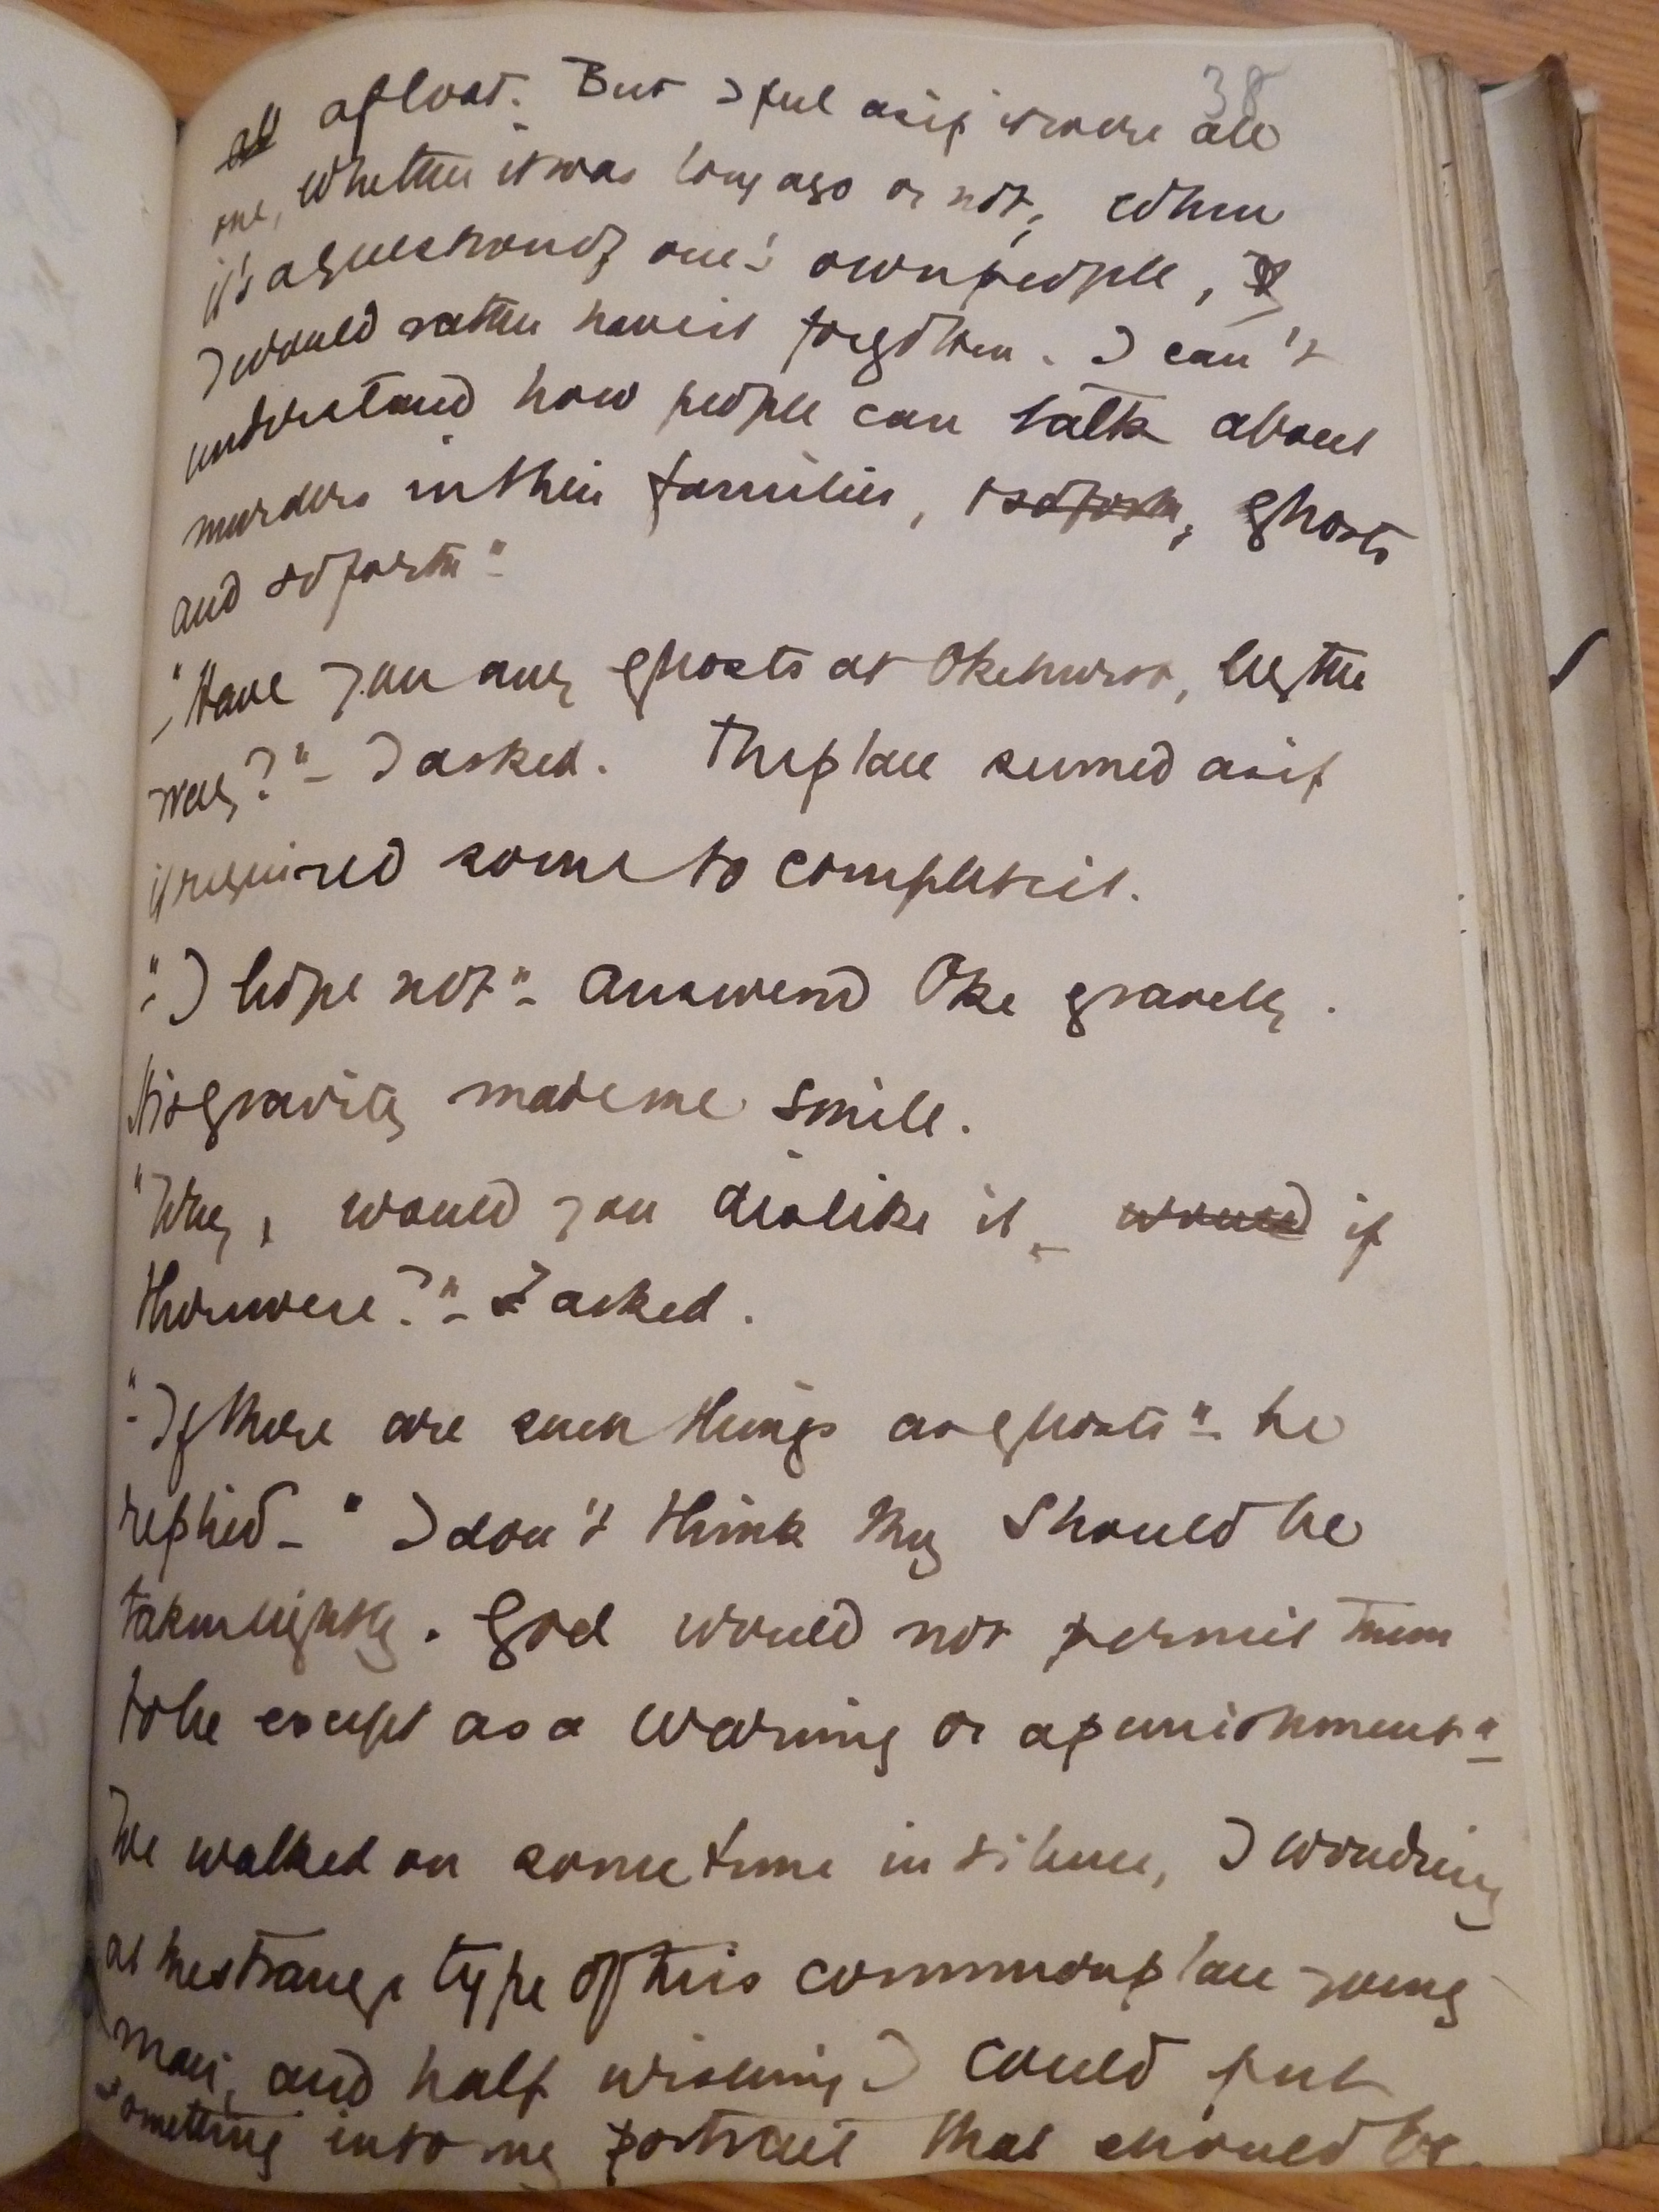 38
all afloat. But I feel as if it were all
one, whether it was long ago or not, when
it's a question of one's own people, I
I would rather have it forgotten. I can't
understand how people can talk about
murders in their families, & so forth, ghosts
and so forth"
"Have you any ghosts at Okehurst, by the
way?" – I asked. The place seemed as if
it required some to complete it.
"I hope not" – answered Oke gravely.
His gravity made me smile.
"Why, would you dislike it, would if
there were?" – I asked.
"If there are such things as ghosts" – he
replied – "I don't think they should be
taken lightly. God would not permit them
to be except as a warning or a punishment"
We walked on some time in silence, I wondering
at the strange type of this commonplace young
man, and half wishing I could put
something into my portrait that should be